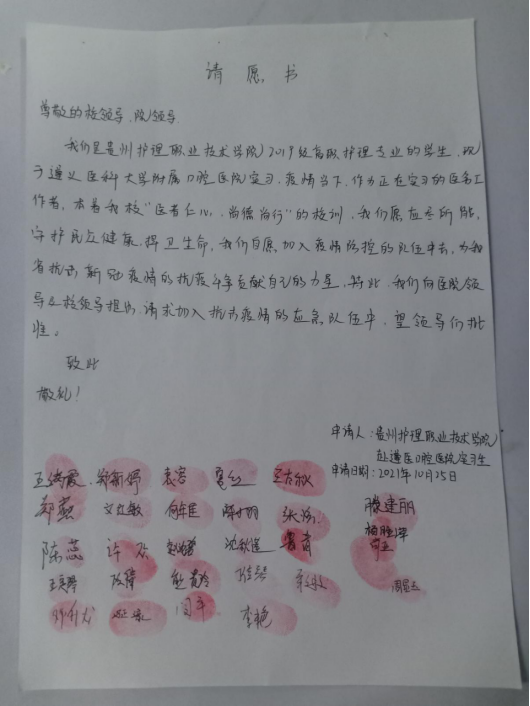 请愿书
尊敬的校领导、院领导
我们是贵州护理职业技术学院2019级高职护理专业的学生，现
于遵义医科大学附属口腔医院实习，疫情当下，作为正在实习的医务工
作者，本着我校“医者仁心，尚德尚行”的校训，我们愿应尽所能，
守护民众健康，捍卫生命，我们自愿加入疫情防控的队伍中去，为我
省抗击新冠疫情的抗疫斗争贡献自己的力量，特此，我们向医院领
导及校领导提出，请求加入抗击疫情的应急队伍中，望领导们批
准。
致此
敬礼！
申请人：贵州护理职业技术学院
赴遵医口腔医院实习生
申请日期：2021年10月25日
袁容
郑燕 张 滕建朋
陈蕊 许 沈秋莲
周
闫平 李艳